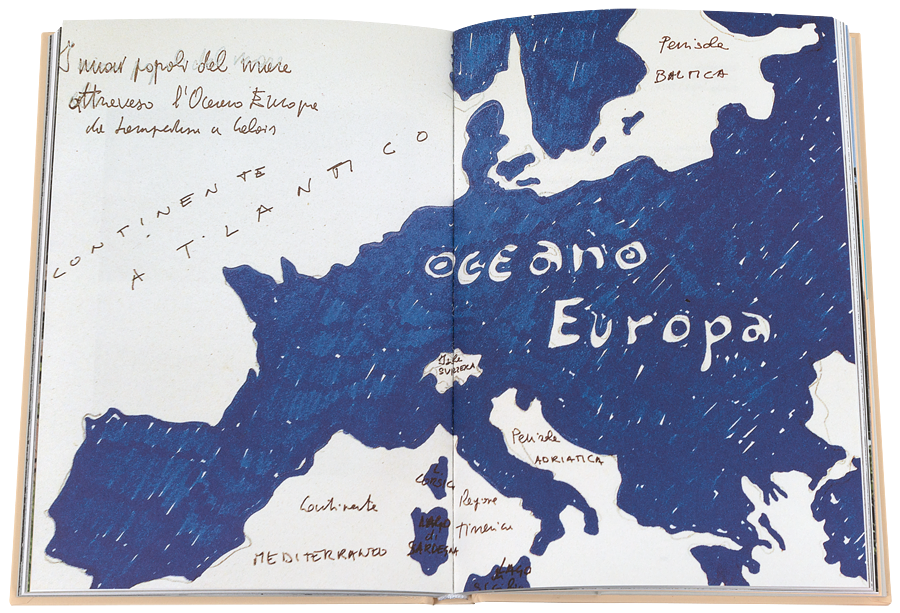 I nuovi popoli del mare
attraverso l'Oceano Europa
da Lampedusa a Calais
CONTINENTE
ATLANTICO
Penisola
BALTICA
OCEano
Europa
SVIZZERA
Penisola
ADRIATICA
Continente
MEDITERRANEO
CORSICA
LAGO
di
SARDEGNA
Regione
tirrenica
LAGO